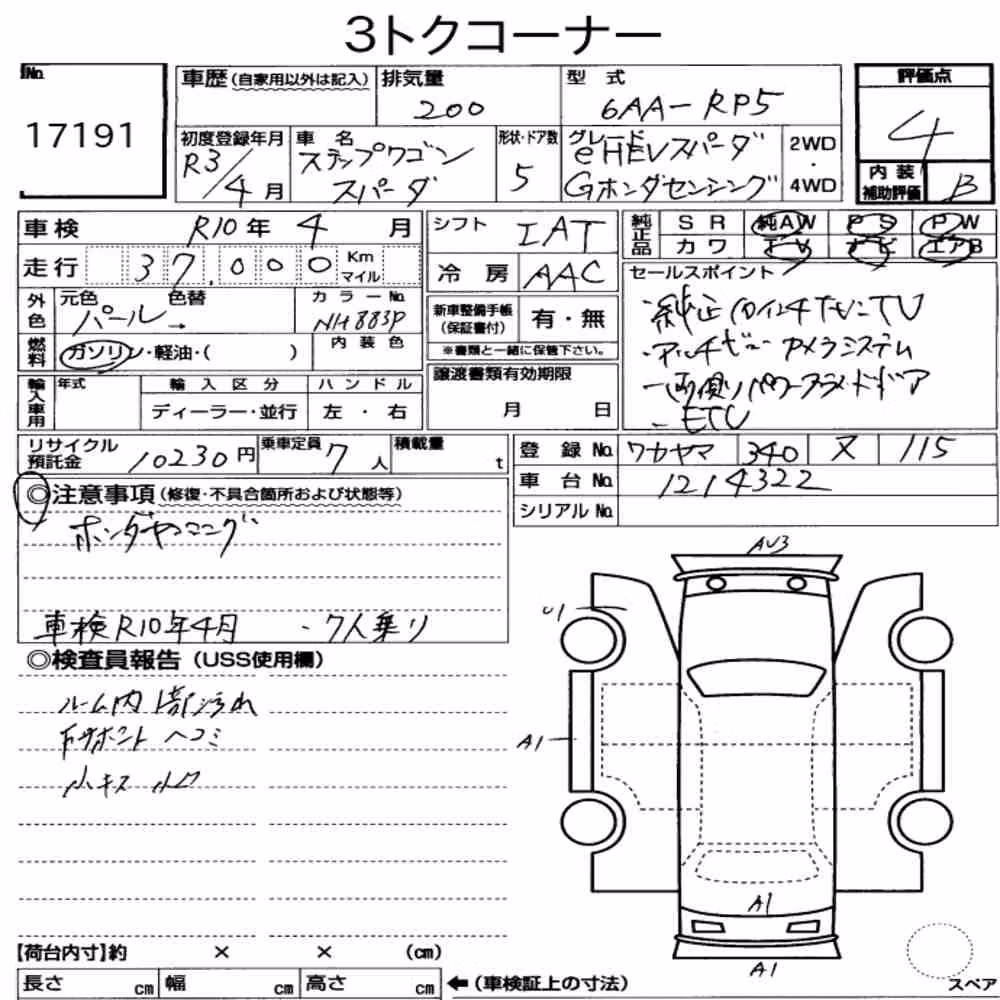 3トクコーナー
No.
17191
車歴 (自家用以外は記入)
排気量
200
型式
6AA-RP5
評価点
4
初度登録年月
R3/4月
車名
ステップワゴン
スパーダ
形状・ドア数
5
グレード
eHEVスパーダ
Gホンダセンシング
2WD
・
4WD
内装
補助評価
B
車検
R10年 4 月
走行
37,000
Km
マイル
シフト
IAT
冷房
AAC
純正品
SR 純AW PS PW
カワ TV ナビ エアB
外色
元色
パール→
色替
カラーNo.
NH883P
燃料
ガソリン・軽油・( )
内装色
新車整備手帳
(保証書付)
有・無
※書類と一緒に保管下さい。
セールスポイント
・アルチビュー カメラシステム
・両側パワースライドドア
・ETC
輸入車用
年式
輸入区分
ディーラー・並行
ハンドル
左・右
譲渡書類有効期限
月 日
リサイクル
預託金
10230円
乗車定員
7人
積載量
t
登録No.
ワカヤマ 340 ヌ 115
車台No.
1214322
シリアルNo.
◎注意事項 (修復・不具合箇所および状態等)
車検R10年4月 ・7人乗り
◎検査員報告 (USS使用欄)
ルーム内 1部汚れ
Fサポート ヘコミ
小キズ 小凹
AU3
U1
A1
A1
A1
【荷台内寸】約 × × (cm)
長さ cm 幅 cm 高さ cm
←(車検証上の寸法)
スペア